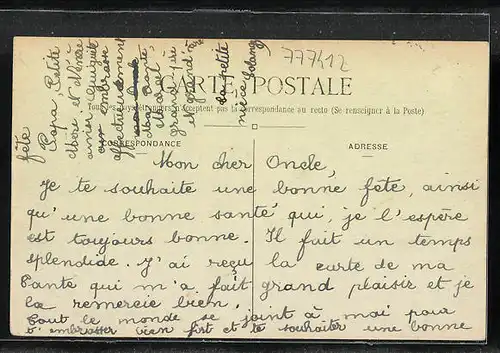 777412
CARTE POSTALE
Tous les pays étrangers n'acceptent pas la correspondance au recto (Se renseigner à la Poste)
CORRESPONDANCE
ADRESSE
Mon cher Oncle,
Je te souhaite une bonne fete, ainsi
qu'une bonne santé qui, je l'espère
est toujours bonne. Il fait un temps
splendide. J'ai reçu la carte de ma
Tante qui m'a fait grand plaisir et je
la remercie bien.
Tout le monde se joint à moi pour
t'embrasser bien fort et te souhaiter une bonne
fête.
Papa, Petite
Mère et
affectueusement
Tante
grand
et grand
ta petite
nièce